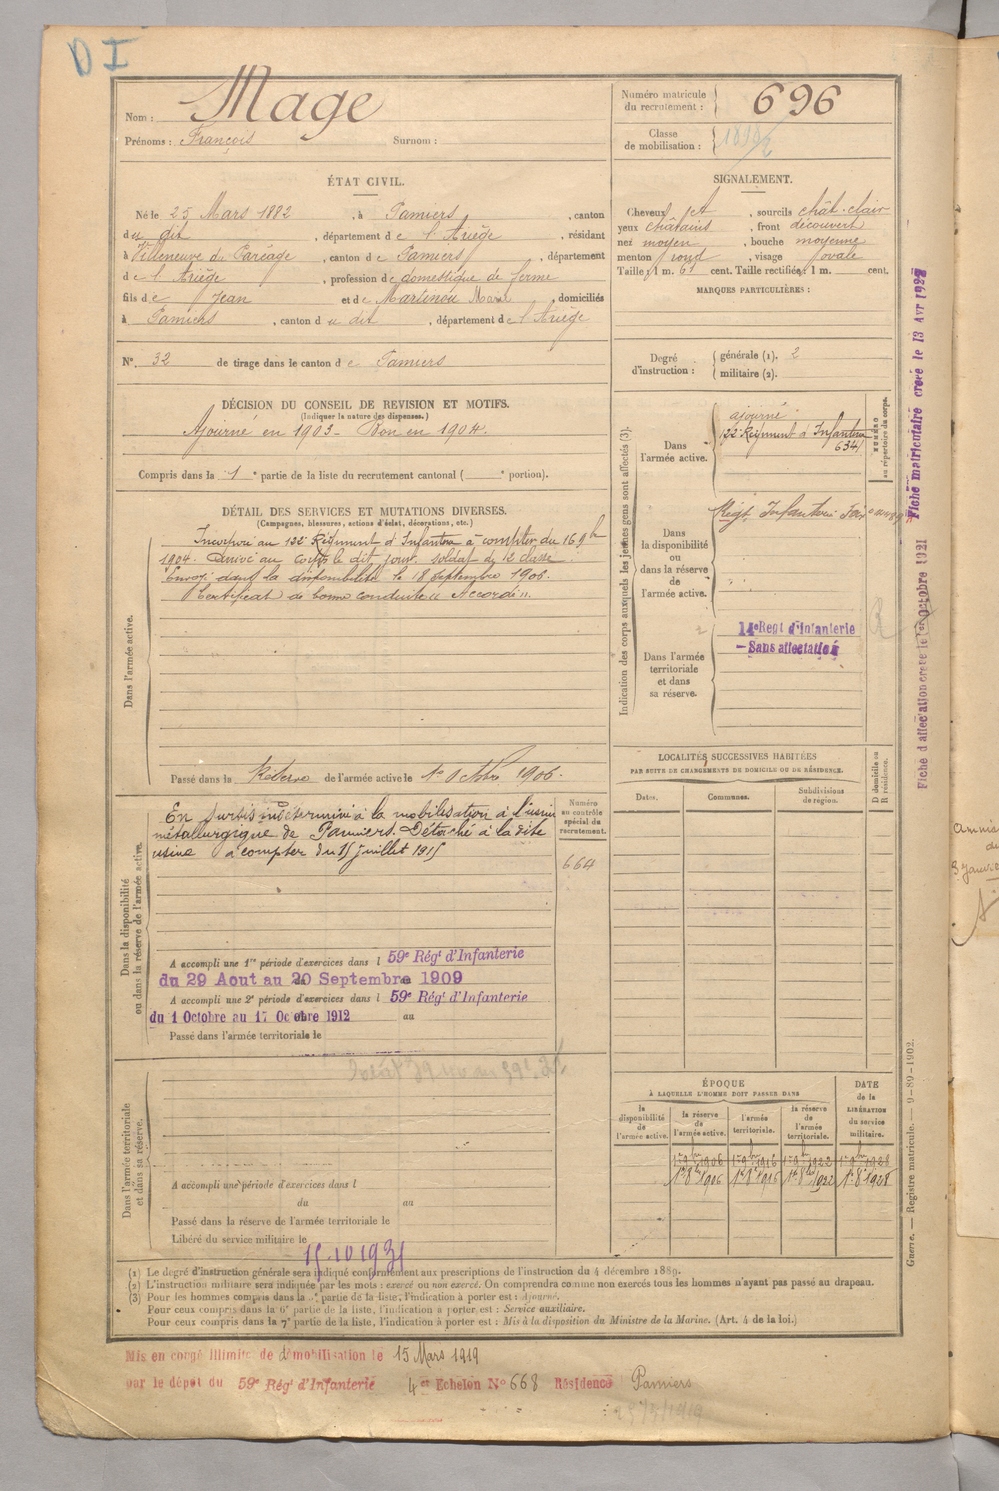 D I
Nom : Mage
Prénoms : François Surnom :
Numéro matricule
du recrutement : 696
Classe
de mobilisation :
ÉTAT CIVIL.
Né le 25 Mars 1882 , à Pamiers , canton
du dit , département de l'Ariège , résidant
à Villeneuve du Paréage , canton de Pamiers , département
de l'Ariège , profession de domestique de ferme
fils de Jean et de Martinou Marie , domiciliés
à Pamiers , canton du dit , département de l'Ariège
N° 32 de tirage dans le canton de Pamiers
SIGNALEMENT.
Cheveux et , sourcils chât-clair
yeux châtains , front découvert
nez moyen , bouche moyenne
menton rond , visage ovale
Taille : 1 m. 61 cent. Taille rectifiée : 1 m. cent.
MARQUES PARTICULIÈRES :
Degré
d'instruction :
générale (1). 2
militaire (2).
DÉCISION DU CONSEIL DE REVISION ET MOTIFS.
(Indiquer la nature des dispenses.)
Ajourné en 1903 - Bon en 1904.
Compris dans la 1e partie de la liste du recrutement cantonal ( e portion).
DÉTAIL DES SERVICES ET MUTATIONS DIVERSES.
(Campagnes, blessures, actions d'éclat, décorations, etc.)
Dans l'armée active.
Incorporé au 122e Régiment d'Infanterie à compter du 16 9bre
1904. Arrivé au corps le dit jour. soldat de 2e classe
Envoyé dans la disponibilité le 18 Septembre 1906.
Certificat de bonne conduite " Accordé ".
Passé dans la Réserve de l'armée active le 1er Octobre 1906.
Indication des corps auxquels les jeunes gens sont affectés (3).
Dans
l'armée active.
ajourné
122e Régiment d'Infanterie
6341
NUMÉRO
au répertoire du corps.
Dans
la disponibilité
ou
dans la réserve
de
l'armée active.
Régt Infanterie Foix
Dans l'armée
territoriale
et dans
sa réserve.
14e Regt d'Infanterie
- Sans affectation
Dans la disponibilité
ou dans la réserve de l'armée active.
En sursis indéterminé à la mobilisation à l'usine
métallurgique de Pamiers. Détaché à la dite
usine à compter du 15 juillet 1915
Numéro
au contrôle
spécial du
recrutement.
664
A accompli une 1re période d'exercices dans l 59e Régt d'Infanterie
du 29 Aout au 20 Septembre 1909
A accompli une 2e période d'exercices dans l 59e Régt d'Infanterie
du 1 Octobre au 17 Octobre 1912 au
Passé dans l'armée territoriale le
LOCALITÉS SUCCESSIVES HABITÉES
PAR SUITE DE CHANGEMENTS DE DOMICILE OU DE RÉSIDENCE.
Dates. Communes. Subdivisions
de région.
D domicile ou
R résidence.
Dans l'armée territoriale
et dans sa réserve.
A accompli une période d'exercices dans l
du au
Passé dans la réserve de l'armée territoriale le
Libéré du service militaire le 15.10 1931
ÉPOQUE
À LAQUELLE L'HOMME DOIT PASSER DANS
la
disponibilité
de
l'armée active.
la réserve
de
l'armée active.
l'armée
territoriale.
la réserve
de
l'armée
territoriale.
DATE
de la
LIBÉRATION
du service
militaire.
1er 9bre 1906 1er 9bre 1916 1er 9bre 1922 1er 9bre 1928
1er 8bre 1906 1er 8bre 1916 1er 8bre 1922 1er 8bre 1928
(1) Le degré d'instruction générale sera indiqué conformément aux prescriptions de l'instruction du 4 décembre 1889.
(2) L'instruction militaire sera indiquée par les mots : exercé ou non exercé. On comprendra comme non exercés tous les hommes n'ayant pas passé au drapeau.
(3) Pour les hommes compris dans la 5e partie de la liste, l'indication à porter est : Ajourné.
Pour ceux compris dans la 6e partie de la liste, l'indication à porter est : Service auxiliaire.
Pour ceux compris dans la 7e partie de la liste, l'indication à porter est : Mis à la disposition du Ministre de la Marine. (Art. 4 de la loi.)
Mis en congé illimité de démobilisation le 15 Mars 1919
par le dépôt du 59e Régt d'Infanterie 4e Echelon N° 668 Résidence Pamiers
Fiche d'affectation créée le 1er Octobre 1921
Fiche matriculaire créée le 13 Avr 1927
Guerre. — Registre matricule. — 9-89-1902.